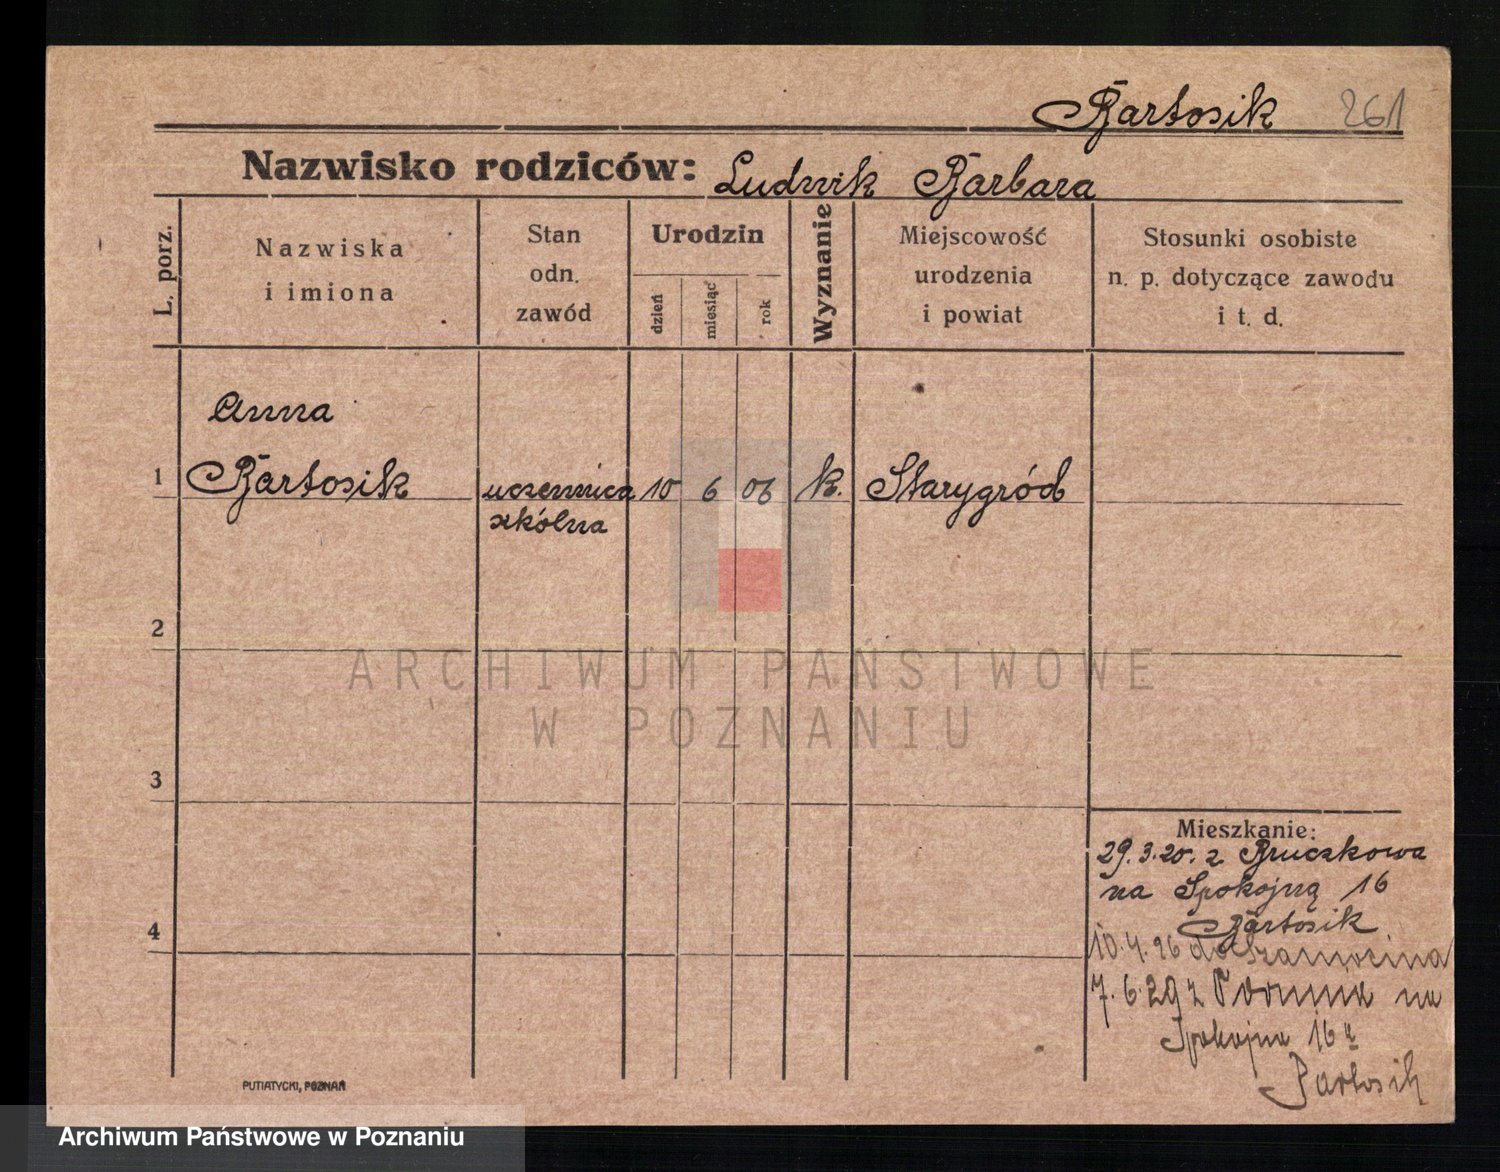 Bartosik 261
Nazwisko rodziców: Ludwik Barbara
L. porz.
Nazwiska
i imiona
Stan
odn.
zawód
Urodzin
dzień
miesiąc
rok
Wyznanie
Miejscowość
urodzenia
i powiat
Stosunki osobiste
n. p. dotyczące zawodu
i t. d.
Anna
1 Bartosik uczennica 10 6 06 k. Starygród
szkólna
2
3
4
ARCHIWUM PAŃSTWOWE
W POZNANIU
Mieszkanie:
29.3.20. z Bruczkowa
na Spokojną 16
Bartosik
10.4.26 do
7.6.29 z na
Spokojna 16a
Bartosik
PUTIATYCKI, POZNAŃ
Archiwum Państwowe w Poznaniu